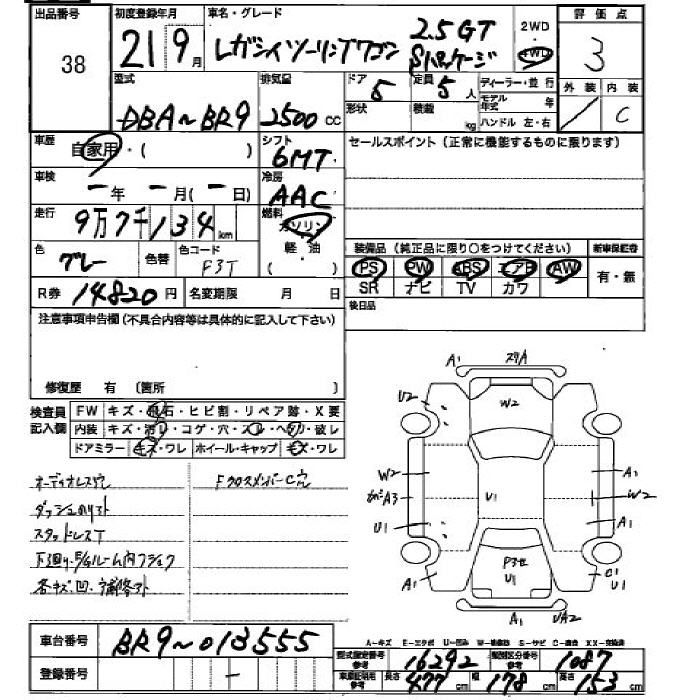 出品番号 初度登録年月 車名・グレード 2.5GT 2WD 評価点
38 21 9月 レガシィツーリングワゴン Sパッケージ 4WD 3
型式 排気量 ドア 5 定員 5人 ディーラー・並行 外装 内装
DBA-BR9 2500CC 形状 積載 kg モデル年式 年 C
ハンドル 左・右
車歴 自家用・( ) シフト 6MT セールスポイント（正常に機能するものに限ります）
車検 ー年 ー月(ー日) 冷房 AAC
走行 9万7千134km 燃料 ガソリン
色 グレー 色替 色コード F3T 軽・油 ( ) 装備品（純正品に限り○をつけてください） 新車保証書
PS PW ABS エアB AW 有・無
R券 14820円 名変期限 月 日 SR ナビ TV カワ
注意事項申告欄(不具合内容等は具体的に記入して下さい) 後日品
修復歴 有 (箇所 )
検査員 FW キズ・飛石・ヒビ割・リペア跡・X要
記入欄 内装 キズ・汚レ・コゲ・穴・スレ・ヘタリ・破レ
ドアミラー キズ・ワレ ホイール・キャップ キズ・ワレ
オーディオレス穴 FクロスメンバーC穴
ダッシュのリスト
スタッドレスT
下回り・E/Gルーム内フショク
各キズ、凹、
A1 スリA
U2 W2
W2 A1
A3 U1 W2
U1 A1
A1 U1 C1 U1
UA2
A-キズ E-エクボ U-凹み S-サビ
車台番号 BR9-013555 型式指定番号 参考 16292 類別区分番号 参考 1087
登録番号 - 車庫証明用 参考 長さ 477cm 幅 178cm 高さ 153cm